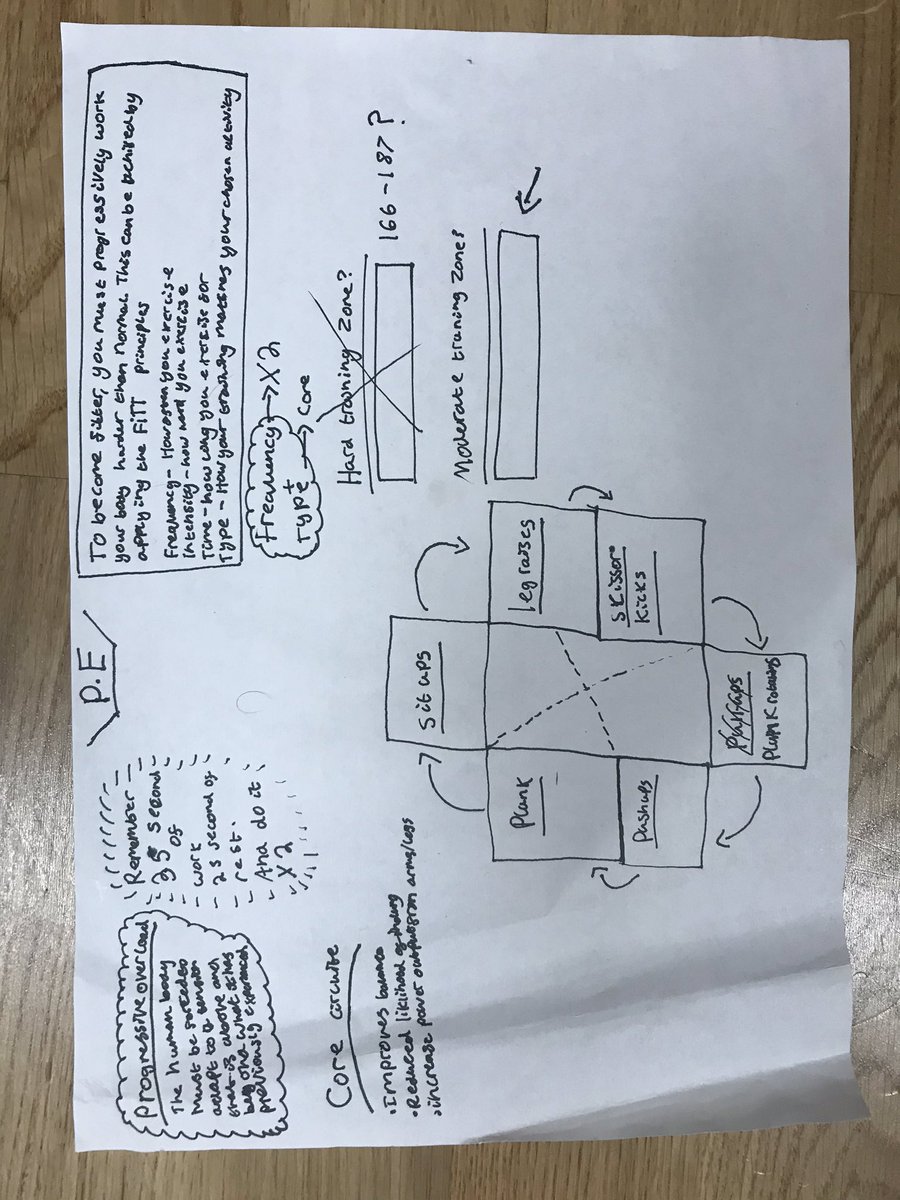 P.E
Progressive overload
The human body
must be forced to
adapt to a tension
that is above and
beyond what it has
previously experienced
Remember
35 second
of
work
25 second of
rest.
And do it
X2
To become fitter, you must progressively work
your body harder than normal. This can be achived by
applying the FiTT principles
Frequency - How often you exercise
intensity - how hard you exercise
Time - how long you exercise for
Type - How your training matches your chosen activity
Frequency → X2
+
Type → Core
Core circuite
• Improves balance
• Reduced liklihood of
• increase power output from arms/legs
Sit ups
Leg raises
Skissor
Kicks
Plank
Pushups
Plank rotations
Hard training Zone?
166 - 187?
Moderate traning Zone?